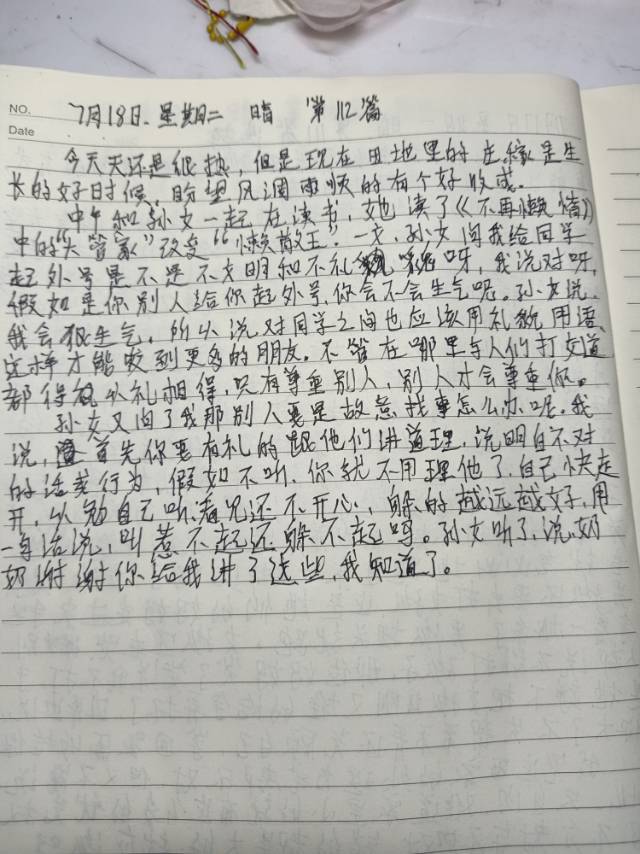 NO.
Date
7月18日、星期二 晴 第112篇
今天天还是很热，但是现在田地里的庄稼是生
长的好日时候，盼望风调雨顺的有个好收成。
中午和孙女一起在读书，她读了《不再懒惰》
中的“大管家”改变“懒散王”一文，孙女问我给同学
起外号是不是不文明和不礼貌呀，我说对呀，
假如是你别人给你起外号，你会不会生气呢。孙女说，
我会很生气，所以说对同学之间也应该用礼貌用语，
这样才能收到更多的朋友。不管在哪里与人们打交道
都得以礼相待，只有尊重别人，别人才会尊重你。
孙女又问了我那别人要是故意找事怎么办呢。我
说，首先你要有礼的跟他们讲道理，说明白不对
的话或行为，假如不听，你就不用理他了，自己快走
开，以勉自己听着见还不开心，躲的越远越好，用
一句话说，叫惹不起还躲不起吗。孙女听了，说，奶
奶谢谢你给我讲了这些，我知道了。